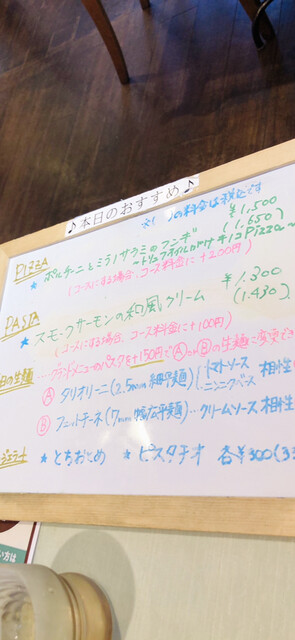 ♪本日のおすすめ♪
※( )の料金は税込です
PIZZA
★ ポルチーニとミラノサラミのフンギ ¥1,500
～トリュフオイルがけキノコPizza～ (1,650)
(コースにする場合、コース料金に+200円)
PASTA
★ スモークサーモンの和風クリーム ¥1,300
(コースにする場合、コース料金に+100円) (1,430)
日の生麺 …グランドメニューのパスタを+150円でⒶorⒷの生麺に変更でき
Ⓐ タリオリーニ(2.5mm細平麺) トマトソース
ニンニクベース 相性
Ⓑ フェットチーネ(7mm幅広平麺)…クリームソース 相性
ジェラート ★ とちおとめ ★ ピスタチオ 各¥300(33
い方は